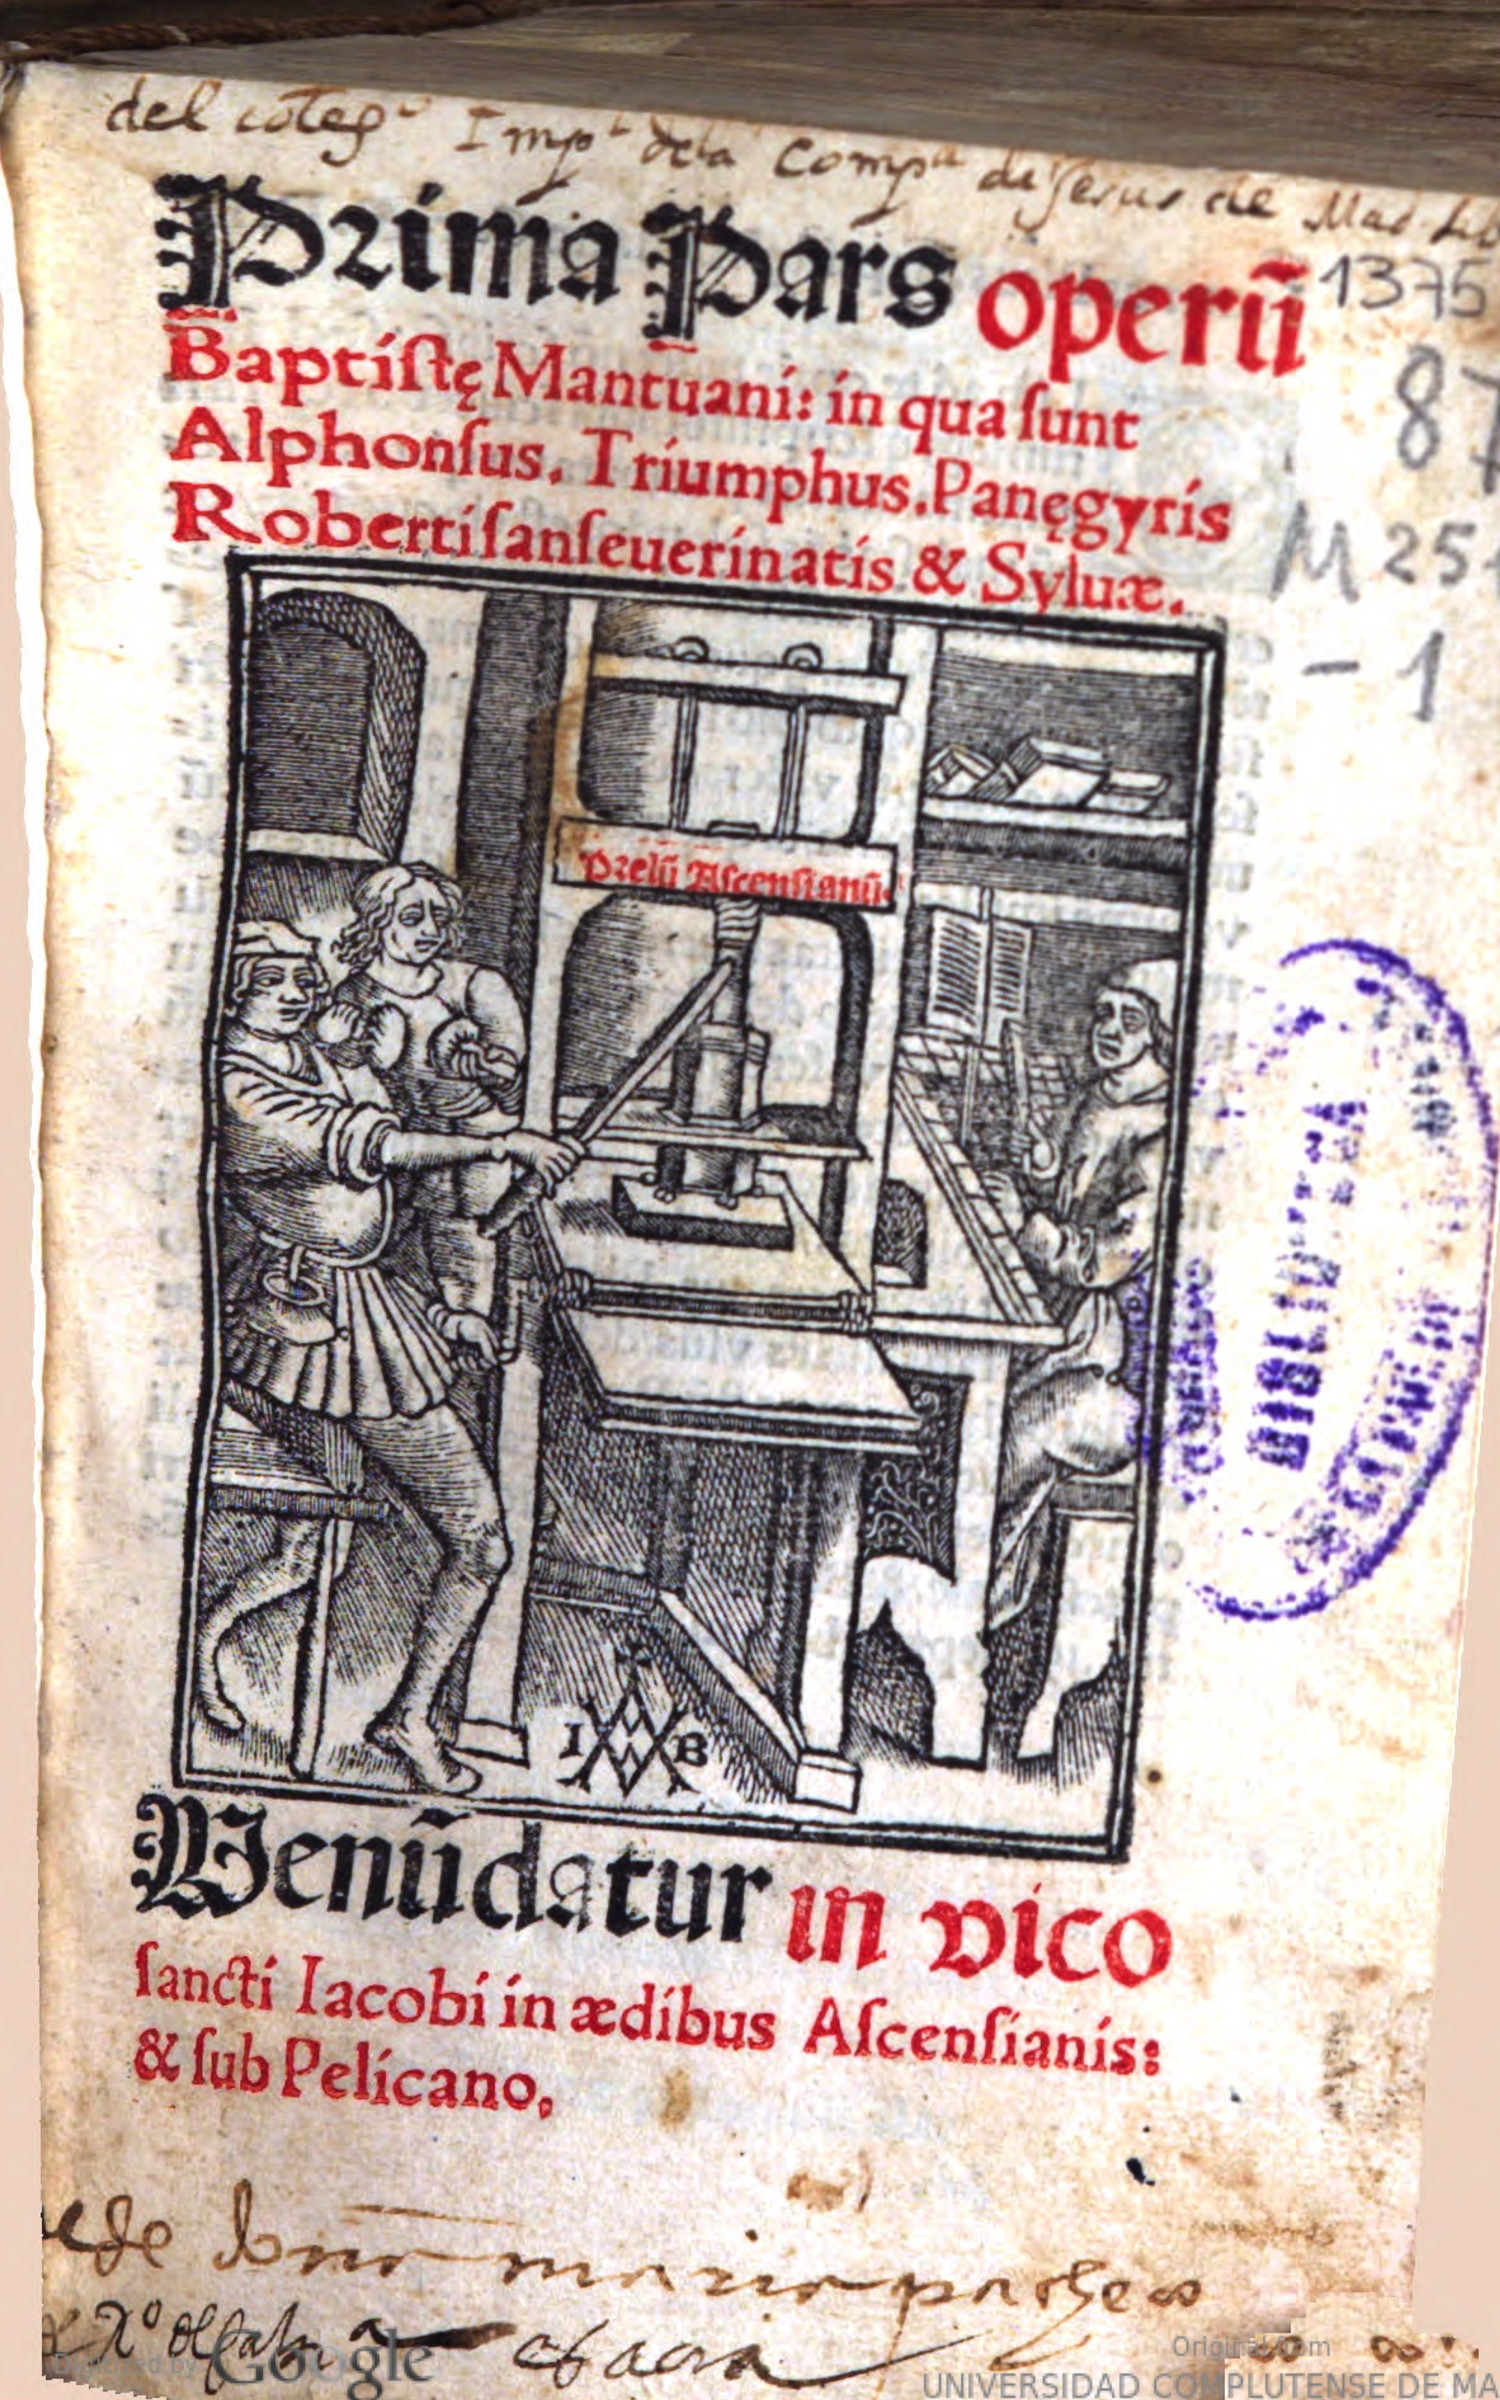 del coleg° Imp¹ dela Compª de Jesus de Mad
Prima Pars operū
1375
Baptiſtę Mantuani: in qua ſunt
87
Alphonſus. Triumphus. Panęgyris
M 25
Roberti ſanſeuerinatis & Syluæ.
- 1
Prelū Aſcenſianū
BIBLIOTECA
I B
Venūdatur in vico
ſancti Iacobi in ædibus Aſcenſianis:
& ſub Pelicano.
Digitized by Google
Original from
UNIVERSIDAD COMPLUTENSE DE MA